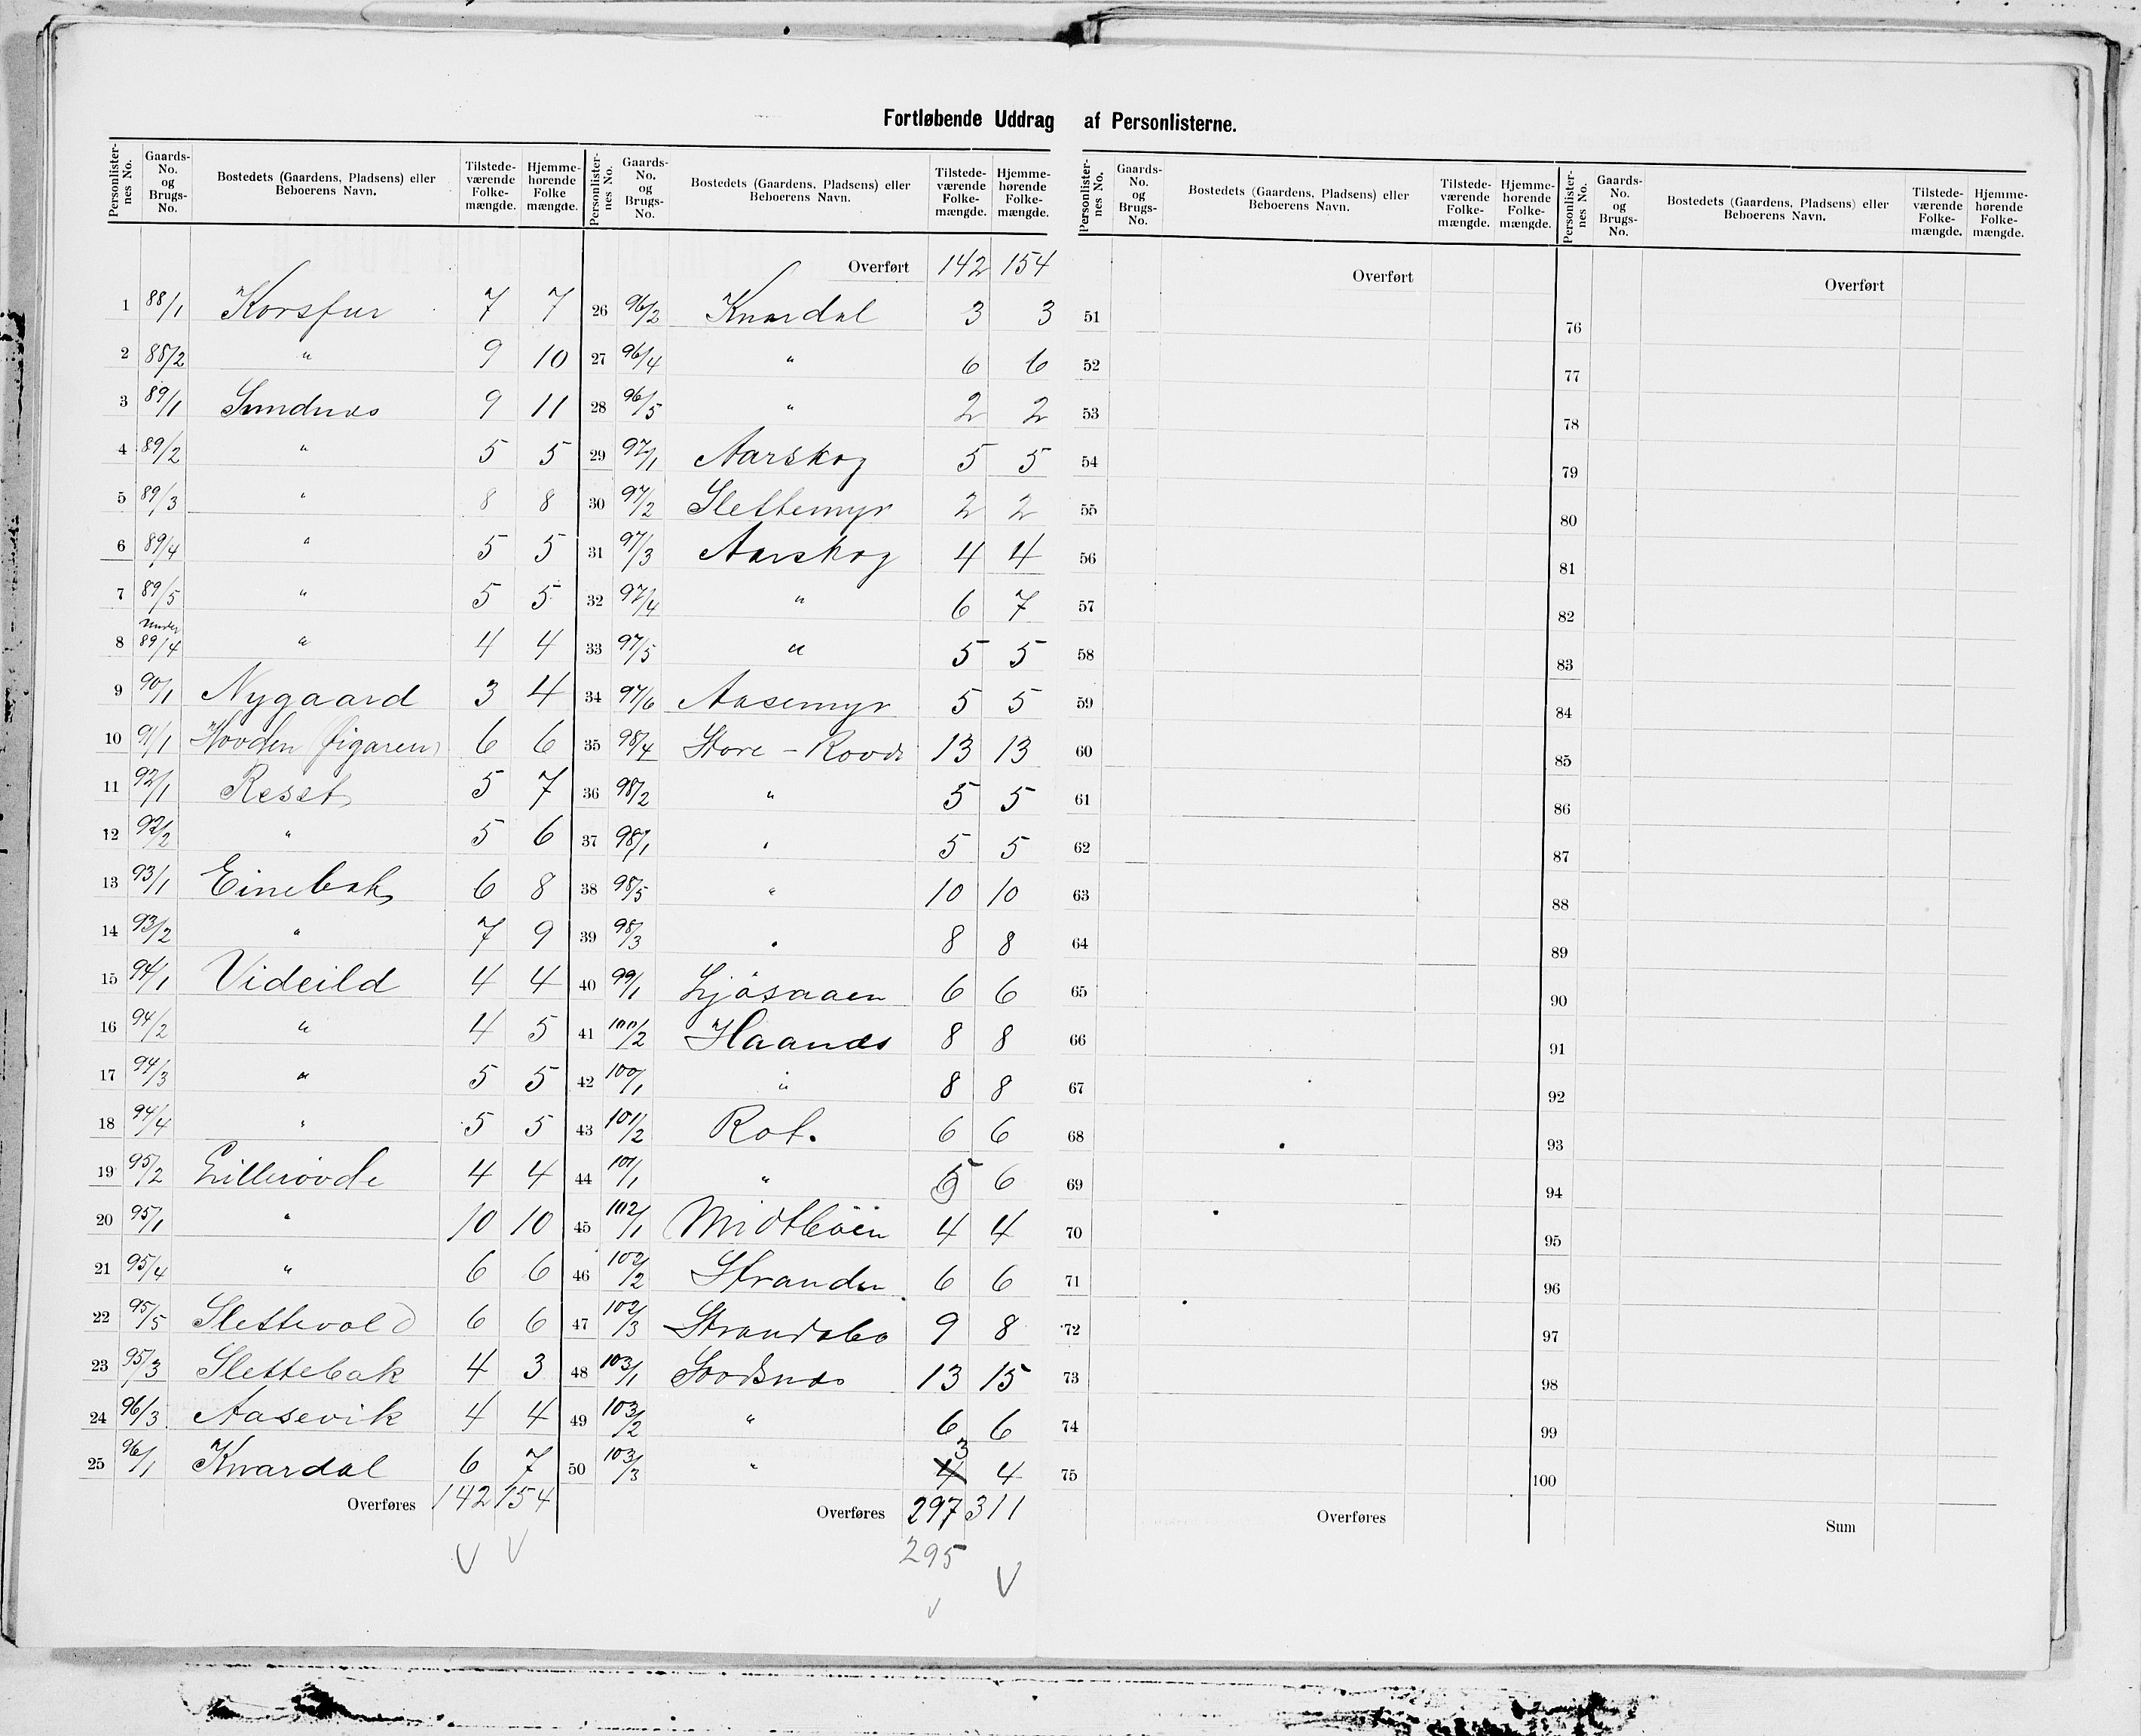 Fortløbende Uddrag af Personlisterne.
Personlister-nes No. Gaards-No. og Brugs-No. Bostedets (Gaardens, Pladsens) eller Beboerens Navn. Tilstede-værende Folke-mængde. Hjemme-hørende Folke mængde.
1 88/1 Korsfur 7 7
2 88/2 " 9 10
3 89/1 Sundnæs 9 11
4 89/2 " 5 5
5 89/3 " 8 8
6 89/4 " 5 5
7 89/5 " 5 5
8 Under 89/4 " 4 4
9 90/1 Nygaard 3 4
10 91/1 Hovden (figaren) 6 6
11 92/1 Reset 5 7
12 92/2 " 5 6
13 93/1 Einebak 6 8
14 93/2 " 7 9
15 94/1 Videild 4 4
16 94/2 " 4 5
17 94/3 " 5 5
18 94/4 " 5 5
19 95/2 Lillerövde 4 4
20 95/1 " 10 10
21 95/4 " 6 6
22 95/5 Slettevold 6 6
23 95/3 Slettebak 4 3
24 96/3 Aasevik 4 4
25 96/1 Knardal 6 7
Overføres 142 154
Personlister-nes No. Gaards-No. og Brugs-No. Bostedets (Gaardens, Pladsens) eller Beboerens Navn. Tilstede-værende Folke-mængde. Hjemme-hørende Folke-mængde.
Overført 142 154
26 96/2 Knardal 3 3
27 96/4 " 6 6
28 96/5 " 2 2
29 97/1 Aarskog 5 5
30 97/2 Slettemyr 2 2
31 97/3 Aarskog 4 4
32 97/4 " 6 7
33 97/5 " 5 5
34 97/6 Aasemyr 5 5
35 98/4 Store - Rovde 13 13
36 98/2 " 5 5
37 98/1 " 5 5
38 98/5 " 10 10
39 98/3 " 8 8
40 99/1 Ljösaaen 6 6
41 100/2 Haanæs 8 8
42 100/1 " 8 8
43 101/2 Rot. 6 6
44 101/1 " 5 6
45 102/1 Midtböen 4 4
46 102/2 Stranden 6 6
47 102/3 Strandabø 9 8
48 103/1 13 15
49 103/2 " 6 6
50 103/3 " 4 3 4
Overføres 297 311
295
Personlister-nes No. Gaards-No. og Brugs-No. Bostedets (Gaardens, Pladsens) eller Beboerens Navn. Tilstede-værende Folke-mængde. Hjemme-hørende Folke-mængde.
Overført
51
52
53
54
55
56
57
58
59
60
61
62
63
64
65
66
67
68
69
70
71
72
73
74
75
Overføres
Personlister-nes No. Gaards-No. og Brugs-No. Bostedets (Gaardens, Pladsens) eller Beboerens Navn. Tilstede-værende Folke-mængde. Hjemme-hørende Folke-mængde.
Overført
76
77
78
79
80
81
82
83
84
85
86
87
88
89
90
91
92
93
94
95
96
97
98
99
100
Sum